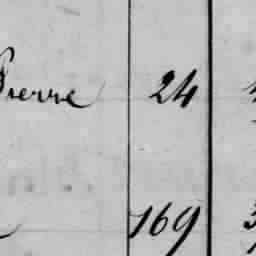 Pierre 24
169 3